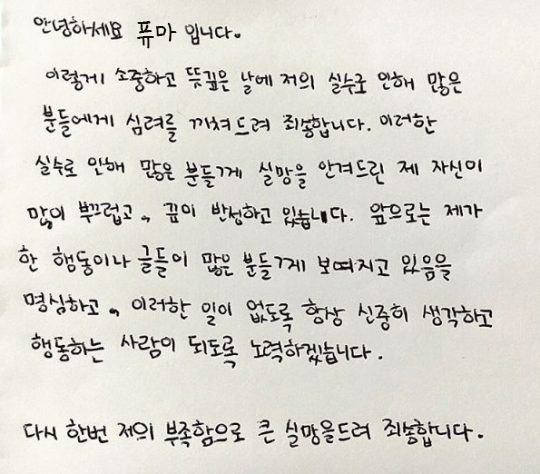 안녕하세요 퓨마 입니다.
이렇게 소중하고 뜻깊은 날에 저의 실수로 인해 많은
분들에게 심려를 끼쳐드려 죄송합니다. 이러한
실수로 인해 많은 분들께 실망을 안겨드린 제 자신이
많이 부끄럽고, 깊이 반성하고 있습니다. 앞으로는 제가
한 행동이나 글들이 많은 분들께 보여지고 있음을
명심하고, 이러한 일이 없도록 항상 신중히 생각하고
행동하는 사람이 되도록 노력하겠습니다.
다시 한번 저의 부족함으로 큰 실망을드려 죄송합니다.